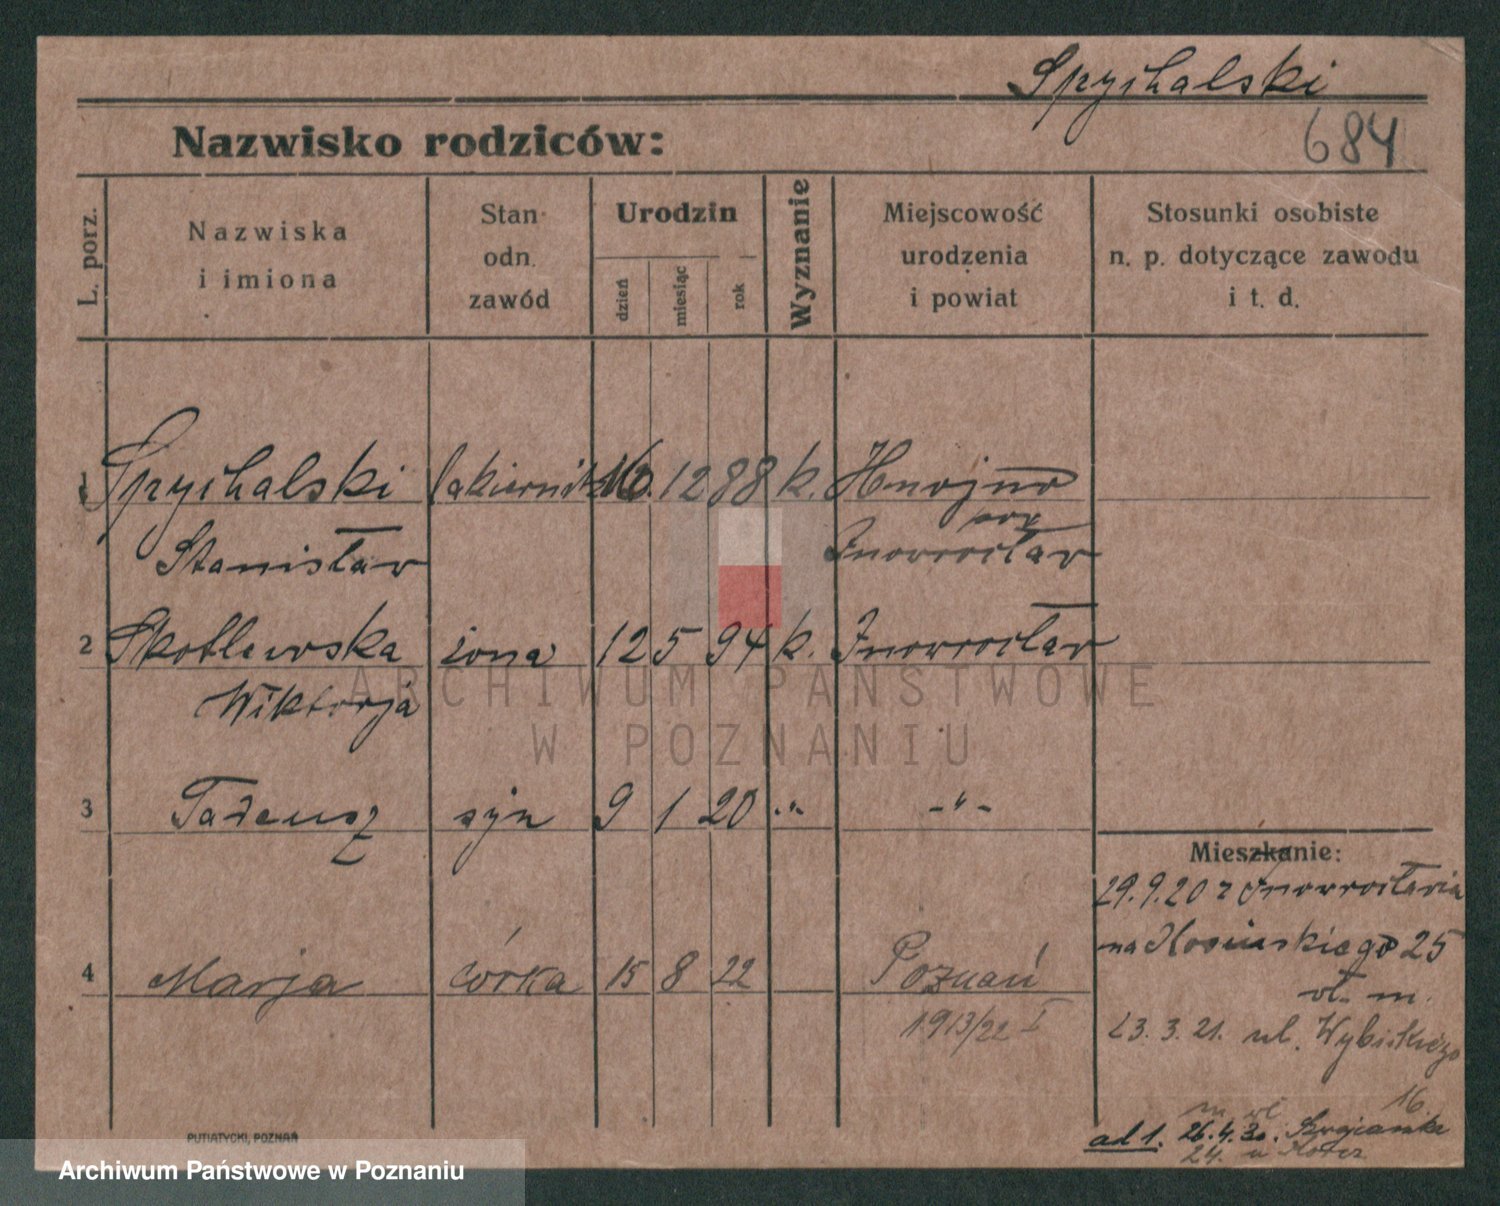 Spychalski
Nazwisko rodziców:
684
L. porz.
Nazwiska
i imiona
Stan
odn.
zawód
Urodzin
dzień
miesiąc
rok
Wyznanie
Miejscowość
urodzenia
i powiat
Stosunki osobiste
n. p. dotyczące zawodu
i t. d.
1 Spychalski lakiernik 16. 12 88 k.
Stanisław Inowrocław
2 Skotlewska żona 12 5 94 k. Inowrocław
Wiktorja
3 Tadeusz syn 9 1 20 " -"-
Mieszkanie:
29.9.20 z Inowrocławia
na Kosińskiego 25
wł. m.
4 Marja córka 15 8 22 Poznań
1913/22 I
23.3.21. ul. Wybickiego
16.
m. wł
ad 1. 26.4.30.
24. u
PUTIATYCKI, POZNAŃ
ARCHIWUM PAŃSTWOWE
W POZNANIU
Archiwum Państwowe w Poznaniu